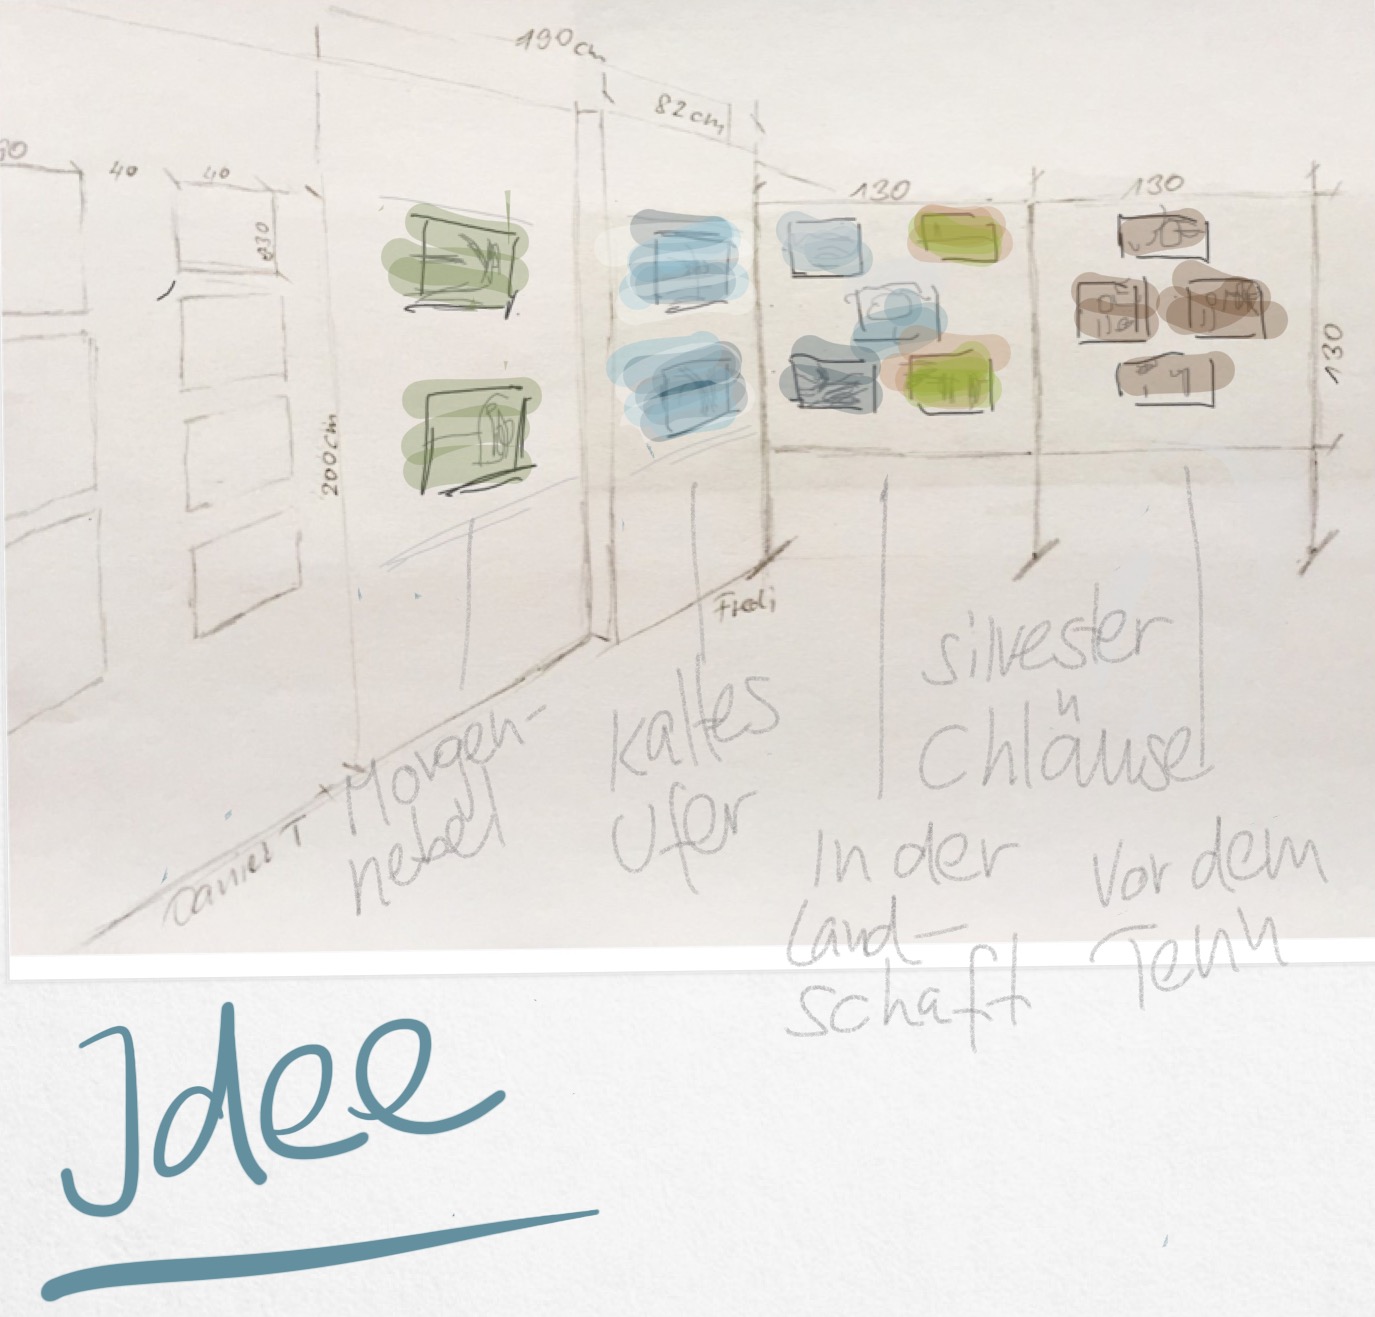 190cm
82cm
40
40
130
130
ø30
200cm
130
Fredi
Daniel T
Morgen-
nebel
Kaltes
Ufer
silvester
Chläuse
In der
Land-
schaft
Vor dem
Tenn
Idee